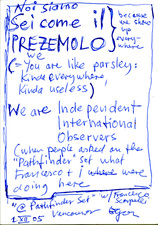 Noi siamo
Sei come il
PREZEMOLO
because
we show
up
every-
where
we
(= You are like parsley:
Kinda everywhere,
Kinda useless)
We are Independent
International
Observers
(when people asked on the
"Pathfinder" set what
Francesco + I were
doing here
"@ Pathfinder Set" w/ Francesco
Scarpelli
Vancouver
1 VII 05